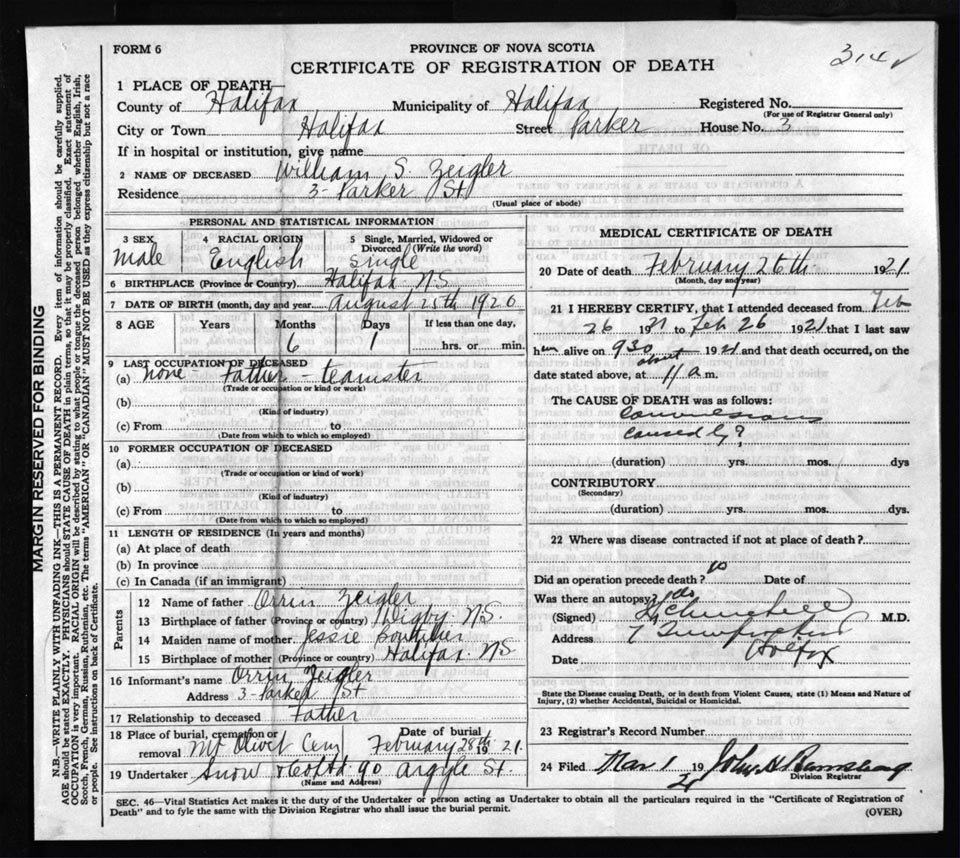 FORM 6
PROVINCE OF NOVA SCOTIA
CERTIFICATE OF REGISTRATION OF DEATH
314 ✓
1 PLACE OF DEATH
County of Halifax Municipality of Halifax Registered No.
(For use of Registrar General only)
City or Town Halifax Street Parker House No. 3
If in hospital or institution, give name
2 NAME OF DECEASED William S. Zeigler
Residence 3 - Parker St
(Usual place of abode)
PERSONAL AND STATISTICAL INFORMATION
3 SEX 4 RACIAL ORIGIN 5 Single, Married, Widowed or Divorced (Write the word)
Male English Single
6 BIRTHPLACE (Province or Country) Halifax N.S.
7 DATE OF BIRTH (month, day and year) August 25th 1920
8 AGE Years Months Days If less than one day,
6 1 hrs. or min.
9 LAST OCCUPATION OF DECEASED
(a) none Father - teamster
(Trade or occupation or kind or work)
(b)
(Kind of industry)
(c) From to
(Date from which to which so employed)
10 FORMER OCCUPATION OF DECEASED
(a)
(Trade or occupation or kind of work)
(b)
(Kind of industry)
(c) From to
(Date from which to which so employed)
11 LENGTH OF RESIDENCE (In years and months)
(a) At place of death
(b) In province
(c) In Canada (if an immigrant)
Parents
12 Name of father Orrin Zeigler
13 Birthplace of father (Province or country) Digby N.S.
14 Maiden name of mother Jessie
15 Birthplace of mother (Province or country) Halifax. N.S
16 Informant's name Orrin Zeigler
Address 3 - Parker St
17 Relationship to deceased Father
18 Place of burial, cremation or removal Mt Olivet Cem Date of burial February 28th 1921.
19 Undertaker Snow & Co Ltd 90 Argyle St.
(Name and Address)
MEDICAL CERTIFICATE OF DEATH
20 Date of death February 26th 1921.
(Month, day and year)
21 I HEREBY CERTIFY, that I attended deceased from Feb
26 21 to Feb 26 1921 that I last saw
him alive on 930 1921 and that death occurred, on the
date stated above, at about 11 a m.
The CAUSE OF DEATH was as follows:
Convulsions
caused by ?
(duration) yrs. mos. dys
CONTRIBUTORY
(Secondary)
(duration) yrs. mos. dys.
22 Where was disease contracted if not at place of death?
Did an operation precede death? no Date of
Was there an autopsy? no
(Signed) Churchill M.D.
Address 7
Halifax
Date
State the Disease causing Death, or in death from Violent Causes, state (1) Means and Nature of
Injury, (2) whether Accidental, Suicidal or Homicidal.
23 Registrar's Record Number
24 Filed Mar 1 1921 John A
Division Registrar
SEC. 46—Vital Statistics Act makes it the duty of the Undertaker or person acting as Undertaker to obtain all the particulars required in the "Certificate of Registration of
Death" and to fyle the same with the Division Registrar who shall issue the burial permit.
(OVER)
MARGIN RESERVED FOR BINDING
N.B.—WRITE PLAINLY WITH UNFADING INK—THIS IS A PERMANENT RECORD. Every item of information should be carefully supplied.
AGE should be stated EXACTLY. PHYSICIANS should STATE CAUSE OF DEATH in plain terms, so that it may be properly classified. Exact statement of
OCCUPATION is very important. RACIAL ORIGIN will be described by stating to what people or tongue the deceased person belonged whether English, Irish,
Scotch, French, German, Russian, Ruthenian, etc. The terms "AMERICAN" OR "CANADIAN" MUST NOT BE USED as they express citizenship but not a race
or people. See instructions on back of Certificate.